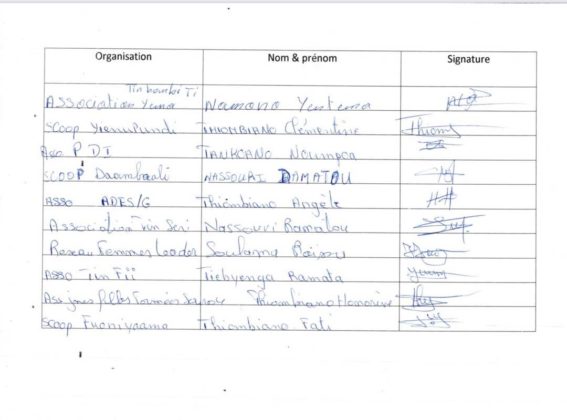 Organisation Nom & prénom Signature
Tin bamba Ti
Association Yema Namono Yentema
SCoop Yienupundi THIOMBIANO Clémentine Thiom
Asso PDI TANKOANO Noumpoa
SCOOP Daambaali NASSOURI DAMATOU
ASSO ADES/G Thiombiano Angèle
Association Tin Seri Nassouri Ramatou
Reseau Femmes Leader Soulama
ASSO Tin Fii Tiebyenga Ramata
Ass jeunes filles Thiombiano Honorine
SCoop Fuoniyaama Thiombiano Fati